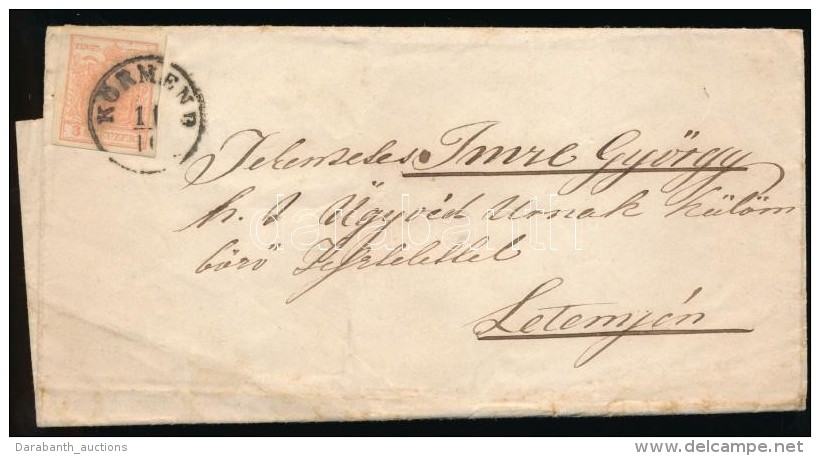 KÖRMEND
11
10
3
Jelenseles Imre György
h. t Ügyvéd Urnak külöm
böző Tisztelettel
Letenyén
darabanth
Darabanth_auctions
www.delcampe.net